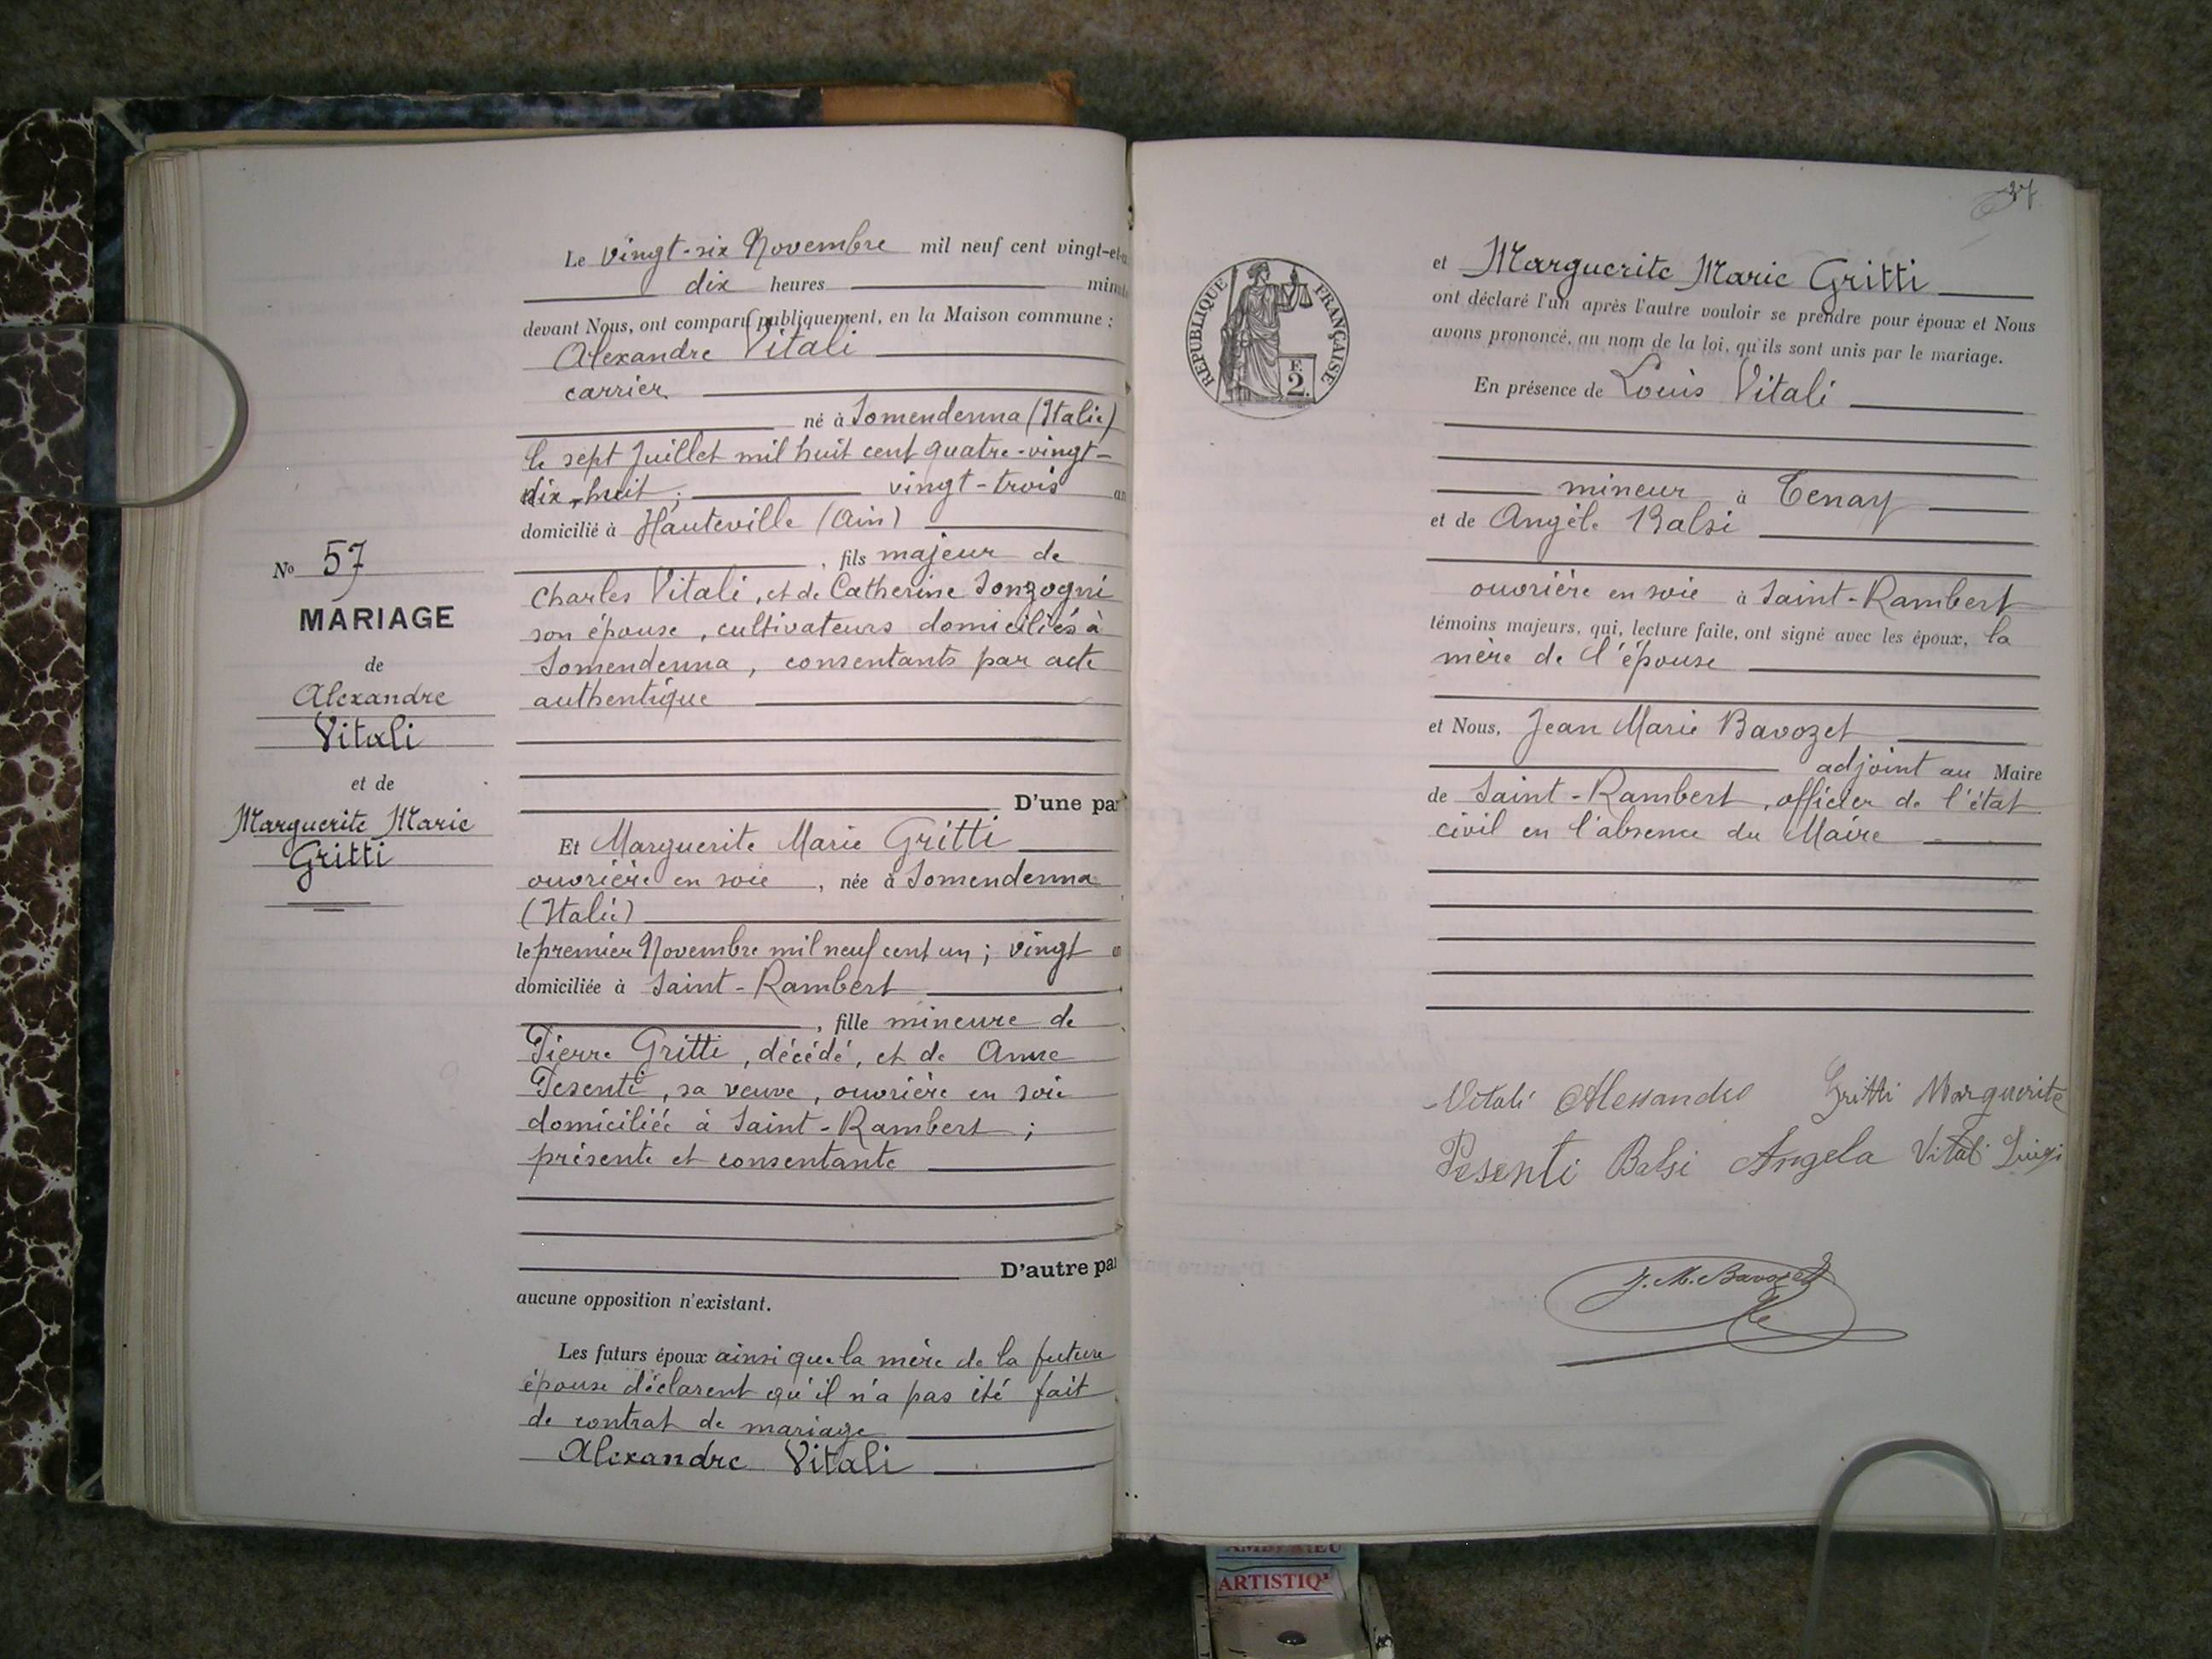 Le vingt-six Novembre mil neuf cent vingt-et-
dix heures minu
devant Nous, ont comparu publiquement, en la Maison commune :
Alexandre Vitali
carrier
né à Somendenna (Italie)
le sept Juillet mil huit cent quatre-vingt-
dix-huit ; vingt-trois an
domicilié à Hauteville (Ain)
, fils majeur de
Charles Vitali, et de Catherine Sonzogni
son épouse, cultivateurs domiciliés à
Somendenna, consentants par acte
authentique
D'une par
No 57
MARIAGE
de
Alexandre
Vitali
et de
Marguerite Marie
Gritti
Et Marguerite Marie Gritti
ouvrière en soie, née à Somendenna
(Italie)
le premier Novembre mil neuf cent un ; vingt
domiciliée à Saint-Rambert
, fille mineure de
Pierre Gritti, décédé, et de Anne
Pesenti, sa veuve, ouvrière en soie
domiciliée à Saint-Rambert ;
présente et consentante
D'autre par
aucune opposition n'existant.
Les futurs époux ainsi que la mère de la future
épouse déclarent qu'il n'a pas été fait
de contrat de mariage
Alexandre Vitali
37
RÉPUBLIQUE FRANÇAISE
F.
2.
et Marguerite Marie Gritti
ont déclaré l'un après l'autre vouloir se prendre pour époux et Nous
avons prononcé, au nom de la loi, qu'ils sont unis par le mariage.
En présence de Louis Vitali
mineur à Tenay
et de Angèle Balsi
ouvrière en soie à Saint-Rambert
témoins majeurs, qui, lecture faite, ont signé avec les époux, la
mère de l'épouse
et Nous, Jean Marie Bavozet
adjoint au Maire
de Saint-Rambert, officier de l'état
civil en l'absence du Maire
Vitali Alessandro Gritti Marguerite
Pesenti Balsi Angela Vitali Luigi
J. M. Bavozet
AMBERIEU
ARTISTIQ